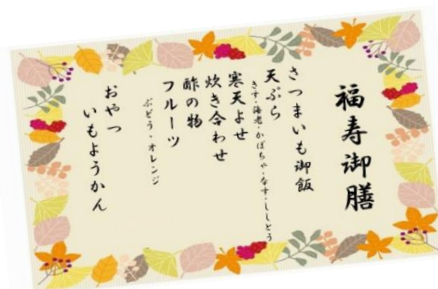 福寿御膳
さつまいも御飯
天ぷら
きす・海老・かぼちゃ・なす・ししとう
寒天よせ
炊き合わせ
酢の物
フルーツ
ぶどう・オレンジ
おやつ
いもようかん